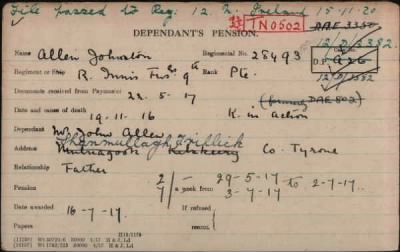 File passed to Reg. 12. N. Ireland 15-11-20
DEPENDANT'S PENSION.
TN0502
Name Allen Johnston Regimental No. 28493
12/D/3382
Regiment or R. Innis Fus. 9th Rank Pte.
D.P.
Documents received from Paymaster 22-5-17
12/D/3382
Date and cause of death 19-11-16 K. in Action
Dependant Mr. John Allen
Shanmullagh Trillick
Address Co. Tyrone
Relationship Father
Pension 2/- a week from 29-5-17 to 2-7-17
7/- 3-7-17
Date awarded 16-7-17. If refused
reason
Papers